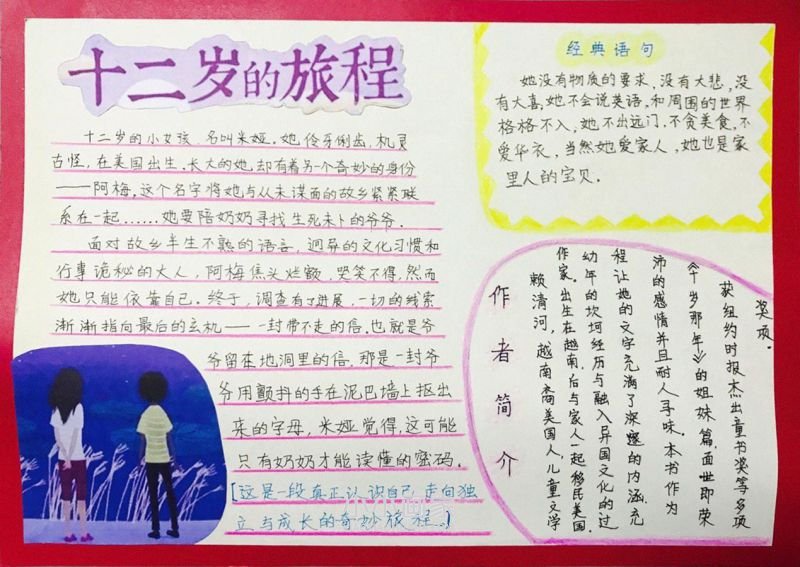 十二岁的旅程
十二岁的小女孩，名叫米娅。她伶牙俐齿，机灵
古怪，在美国出生、长大的她，却有着另一个奇妙的身份
——阿梅，这个名字将她与从未谋面的故乡紧紧联
系在一起……她要陪奶奶寻找生死未卜的爷爷。
面对故乡半生不熟的语言，迥异的文化习惯和
行事诡秘的大人，阿梅焦头烂额，哭笑不得，然而
她只能依靠自己。终于，调查有了进展，一切的线索
渐渐指向最后的玄机——一封带不走的信，也就是爷
爷留在地洞里的信，那是一封爷
爷用颤抖的手在泥巴墙上抠出
来的字母，米娅觉得，这可能
只有奶奶才能读懂的密码。
[这是一段真正认识自己，走向独
立与成长的奇妙旅程。]
经典语句
她没有物质的要求，没有大悲，没
有大喜，她不会说英语，和周围的世界
格格不入，她不出远门，不贪美食，不
爱华衣，当然她爱家人，她也是家
里人的宝贝。
作者简介
赖清河，越南裔美国人，儿童文学
作家。出生在越南，后与家人一起移民美国。
幼年的坎坷经历与融入异国文化的过
程让她的文字充满了深邃的内涵，充
沛的感情并且耐人寻味。本书作为
《十岁那年》的姐妹篇，面世即荣
获纽约时报杰出童书奖等多项
奖项。